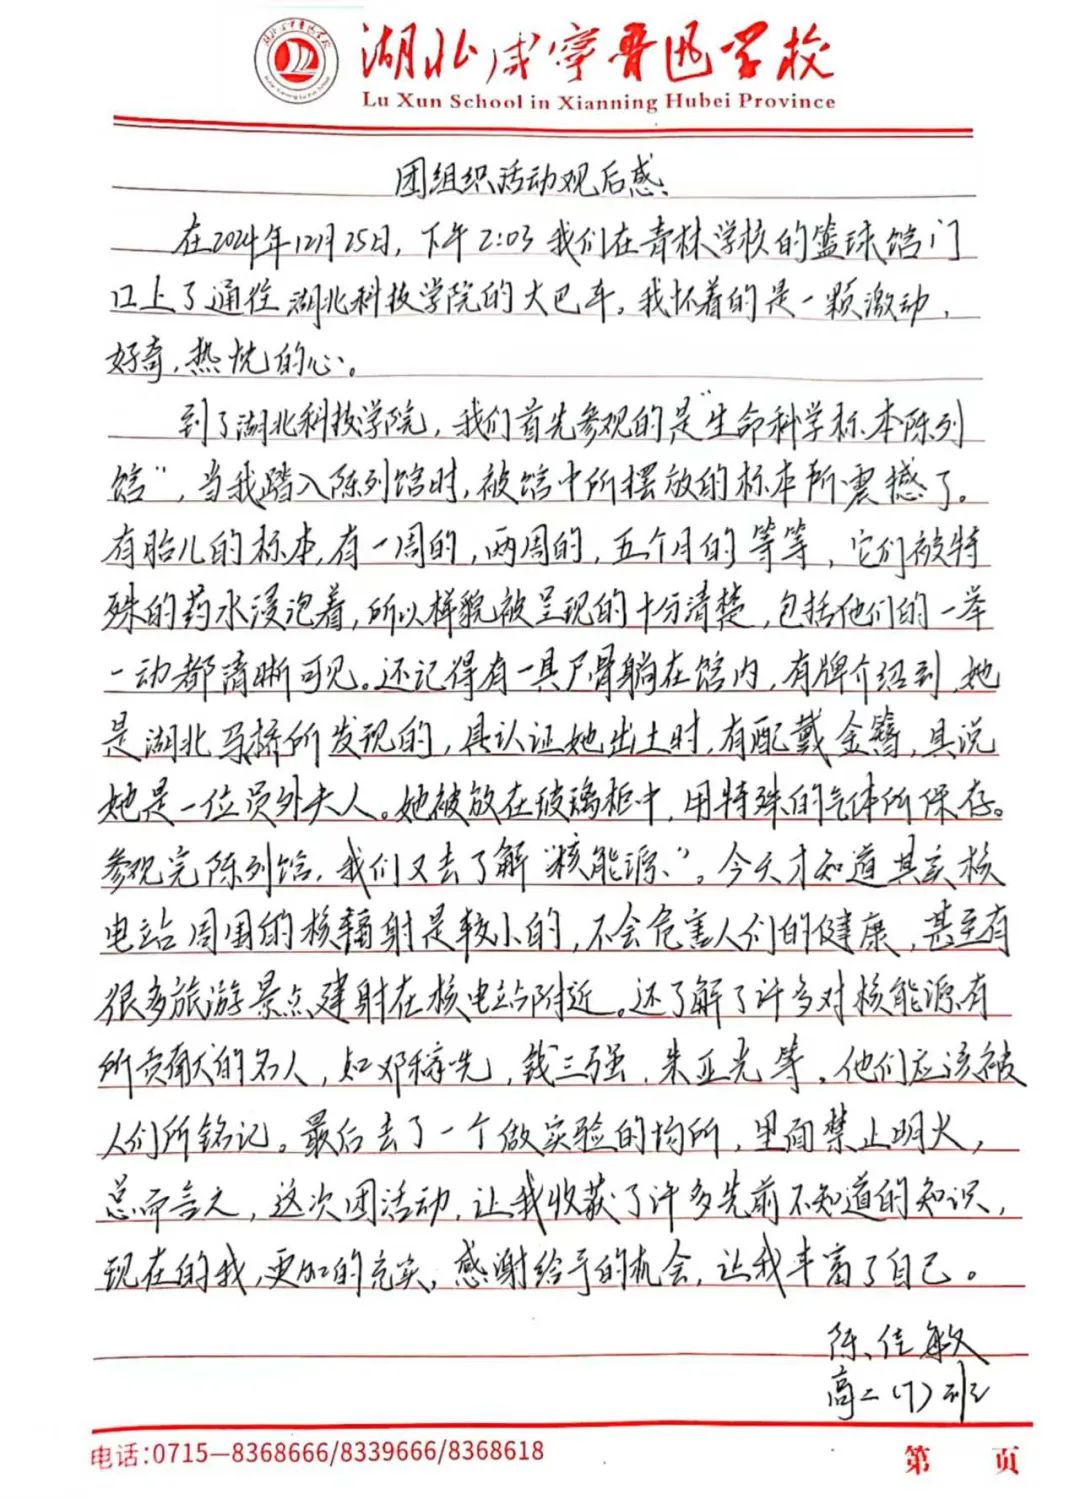 湖北咸宁鲁迅学校
Lu Xun School in Xianning Hubei Province
团组织活动观后感
在2024年12月25日,下午2:03我们在青林学校的篮球馆门
口上了通往湖北科技学院的大巴车。我怀着的是一颗激动,
好奇,热忱的心。
到了湖北科技学院,我们首先参观的是“生命科学标本陈列
馆”,当我踏入陈列馆时,被馆中所摆放的标本所震撼了。
有胎儿的标本,有一周的,两周的,五个月的等等,它们被特
殊的药水浸泡着,所以样貌被呈现的十分清楚,包括他们的一举
一动都清晰可见。还记得有一具尸骨躺在馆内,有牌介绍到,她
是湖北马桥所发现的,具认证她出土时,有配戴金簪,具说
她是一位员外夫人。她被放在玻璃柜中,用特殊的气体所保存。
参观完陈列馆,我们又去了解“核能源”。今天才知道其实核
电站周围的核辐射是较小的,不会危害人们的健康,甚至有
很多旅游景点建射在核电站附近。还了解了许多对核能源有
所贡献的名人,如邓稼先,钱三强,朱亚光等,他们应该被
人们所铭记。最后去了一个做实验的场所,里面禁止明火,
总而言之,这次团活动,让我收获了许多先前不知道的知识,
现在的我,更加的充实,感谢给予的机会,让我丰富了自己。
陈佳敏
高二(7)班
电话:0715—8368666/8339666/8368618
第 页